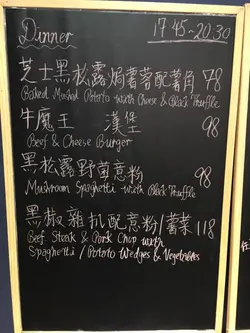 Dinner 17:45~20:30
芝士黑松露焗薯蓉配薯角 78
Baked Mashed Potato with Cheese & Black Truffle
牛魔王 漢堡 98
Beef & Cheese Burger
黑松露野菌意粉 98
Mushroom Spaghetti with Black Truffle
黑椒雜扒配意粉/薯菜 118
Beef Steak & Pork Chop with
Spaghetti / Potato Wedges & Vegetables